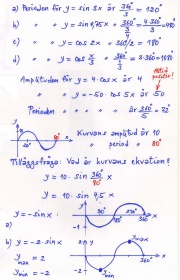 a) Perioden för y = sin 3x är 360°/3 = 120°
" " y = sin 0,75x " 360°/(3/4) = 4·360°/3 = 480°
" " y = cos 2x " 360°/2 = 180°
" " y = cos x/3 " 360°/(1/3) = 3·360° = 1080°
Alltid positiv!
Amplituden för y = 4·cos x är 4
" " y = -50·cos 5x är 50
Perioden " " är 360°/5 = 72°
Kurvans amplitud är 10
80°
" period är 80°
Tilläggsfråga: Vad är kurvans ekvation?
y = 10·sin 360°/80° x
y = 10·sin 4,5x
y = -sin x:
a)
b) y = -2·sin x
y max = 2
y min = -2